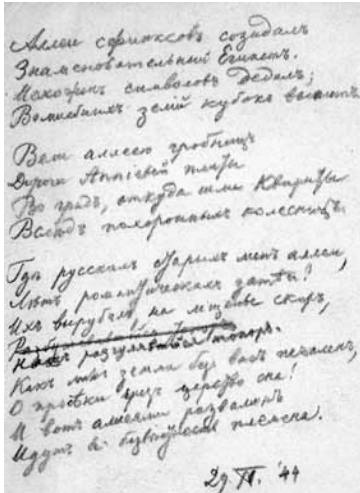 Аллеи сфинксовъ созидалъ
Знаменовательный Египетъ.
символовъ Дедалъ;
Волшебныхъ зелій кубокъ выпитъ.
Вела аллею гробницъ
Дорога Аппіевой плиты
Во градъ, откуда шли Квириты
Вслѣдъ похороннымъ колесницъ.
Гдѣ русскихъ старыхъ аллеи,
Лѣтъ романтическихъ затѣи?
Ихъ вырубилъ, на мщенье скоръ,
разгулявшійся топоръ.
Какъ ликъ земли безъ васъ печаленъ,
О просѣки чрезъ царство сна!
И вотъ аллеями развалинъ
Идутъ въ племена.
29. '44